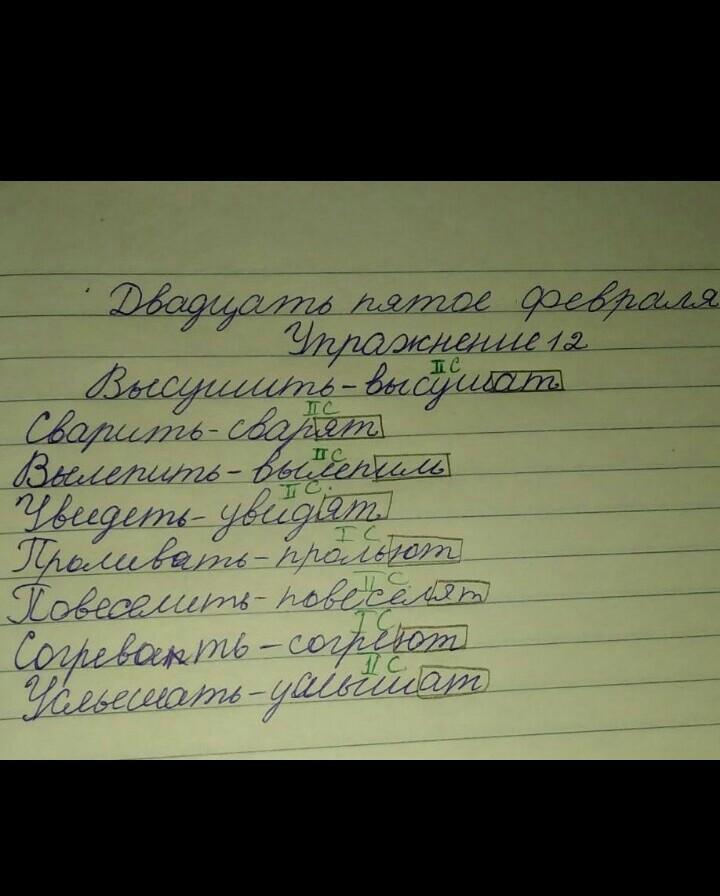 Двадцать пятое февраля
Упражнение 12
II с
Высушить - высушат
II с
Сварить - сварят
II с
Вылепить - вылепиль
II с.
Увидеть - увидят
I с
Проливать - прольют
II с.
Повеселить - повеселят
I с
Согревать - согреют
II с
Услышать - услышат